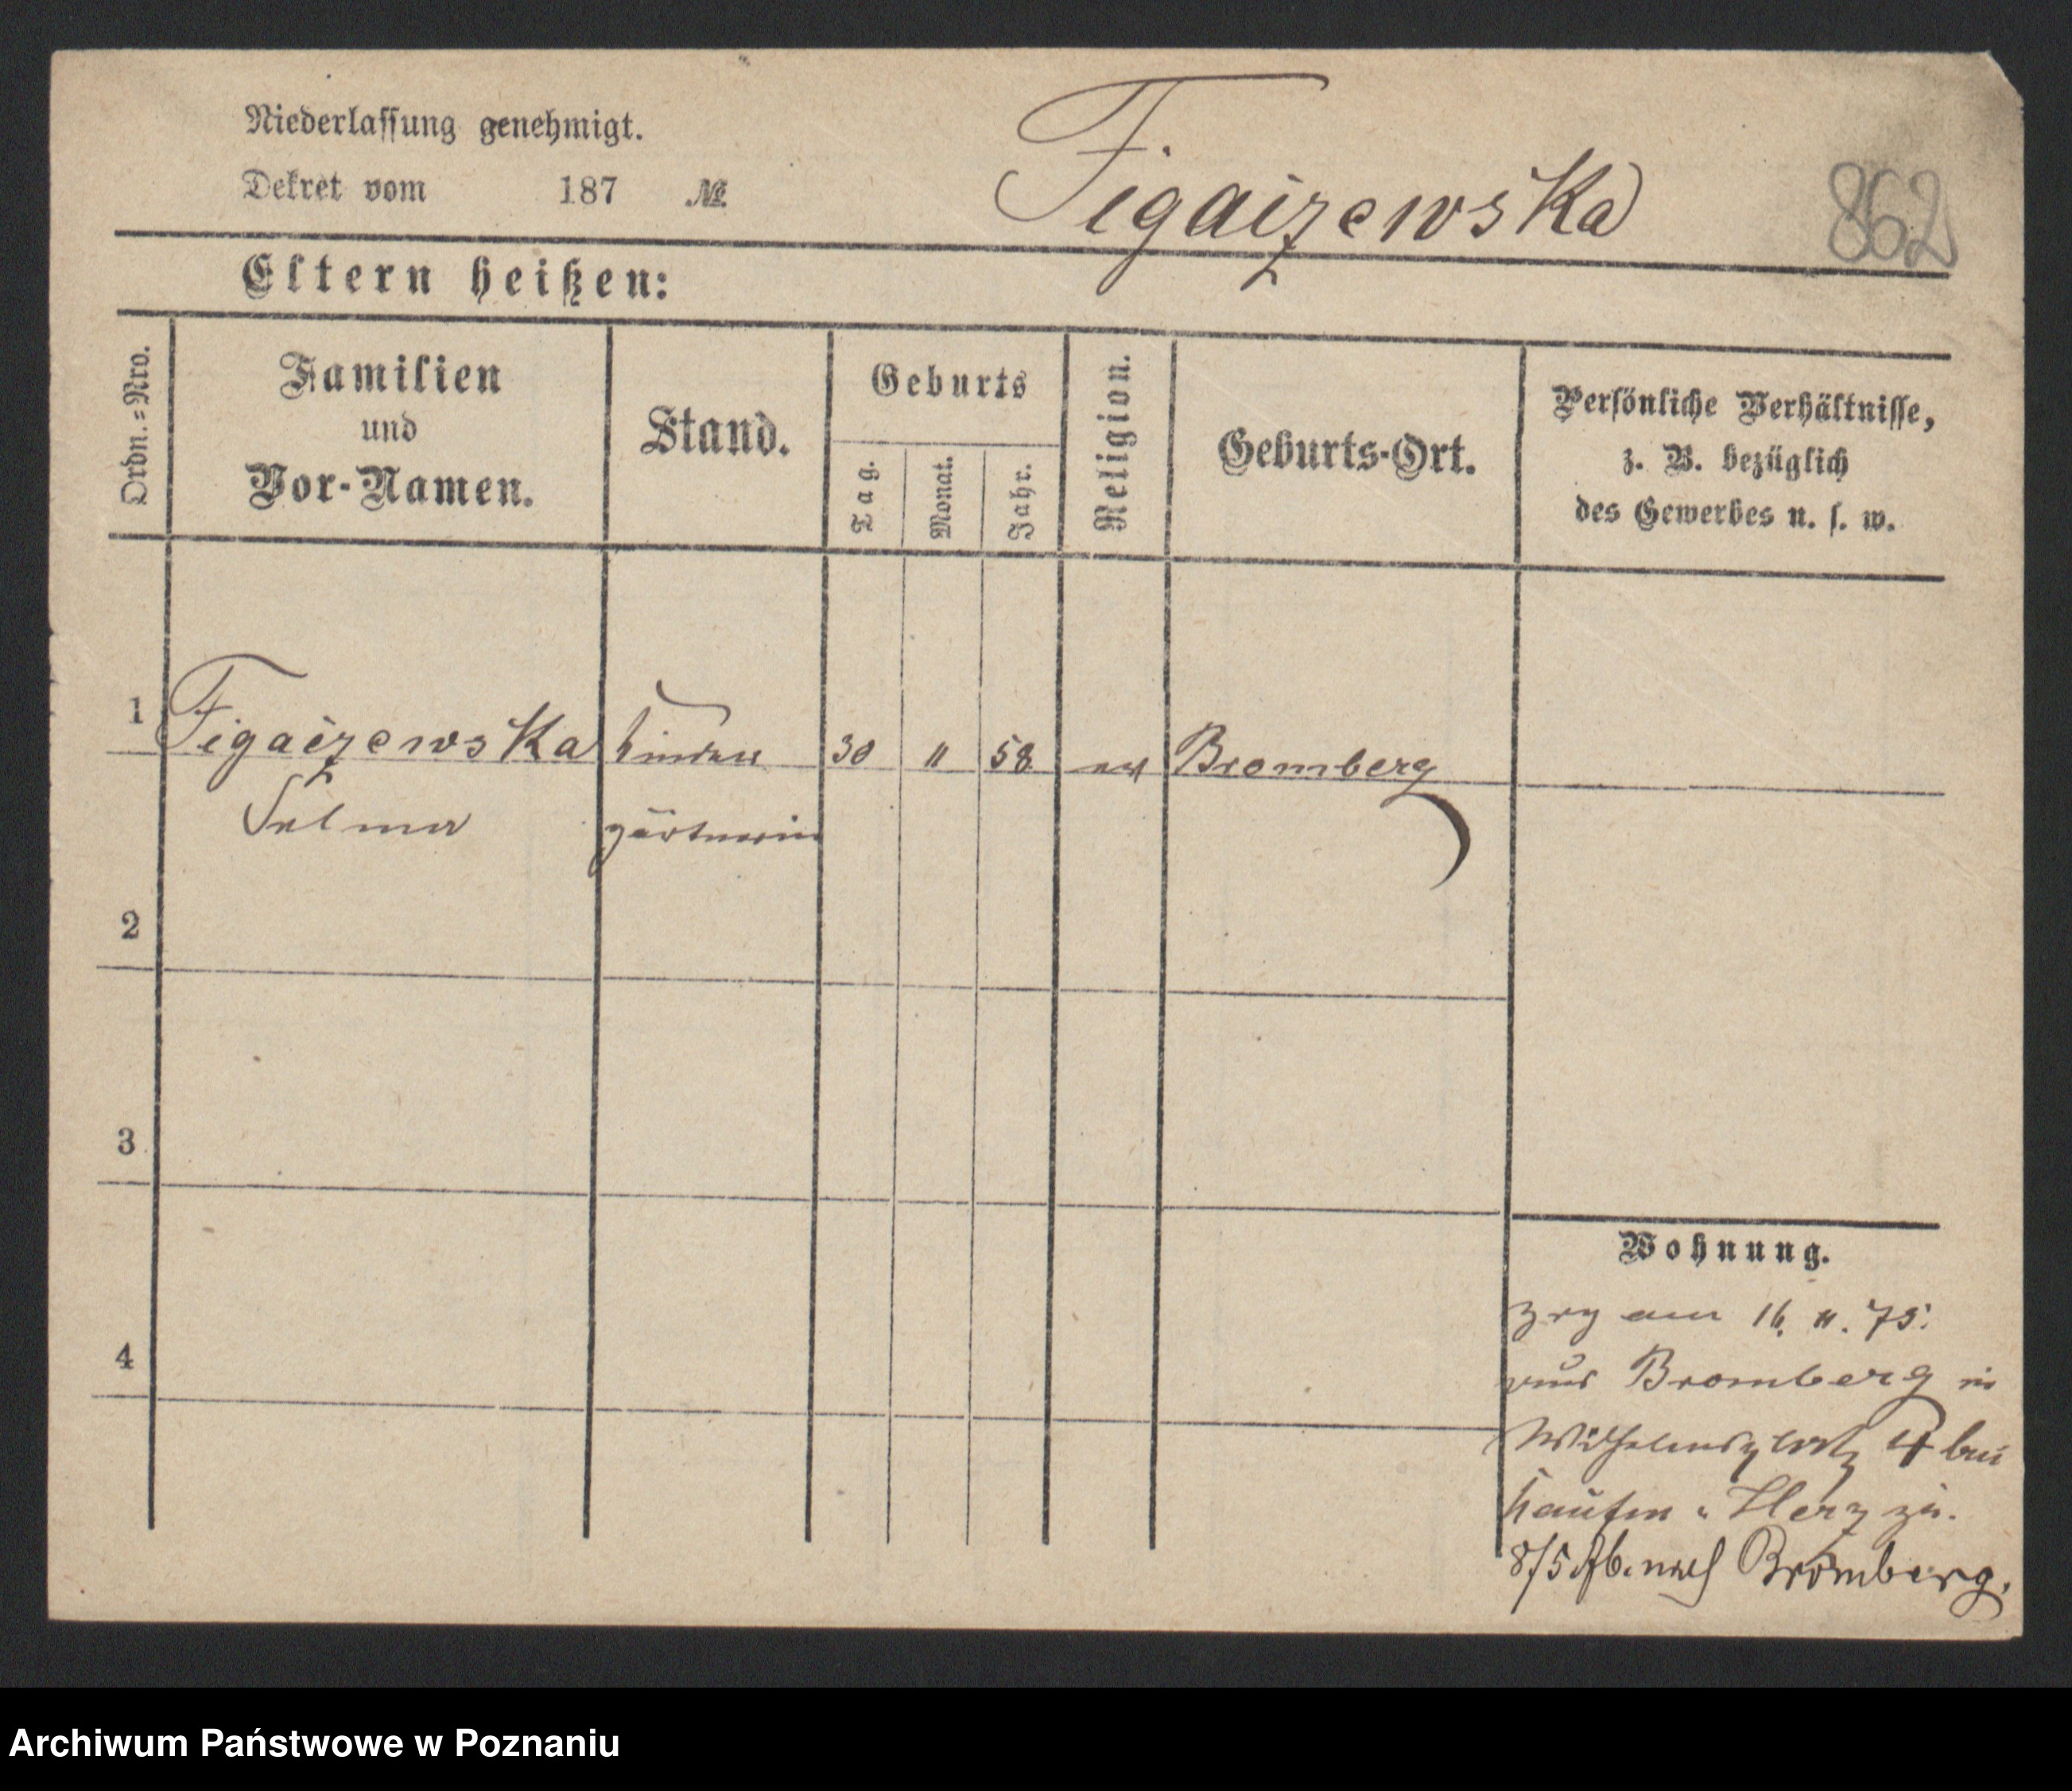 Niederlassung genehmigt.
Dekret vom 187 №
Figaizewska
862
Eltern heißen:
Ordn.=Nro.
Familien
und
Vor-Namen.
Stand.
Geburts
Tag.
Monat.
Jahr.
Religion.
Geburts-Ort.
Persönliche Verhältnisse,
z. B. bezüglich
des Gewerbes u. s. w.
1 Figaizewska Kinder 30 11 58 Bromberg
Selma gärtnerin
2
3
4
Wohnung.
zog am 16. 11. 75.
aus Bromberg in
Wilhelmsplatz 4 bei
Herz zu.
8/5 Ab. nach Bromberg.
Archiwum Państwowe w Poznaniu